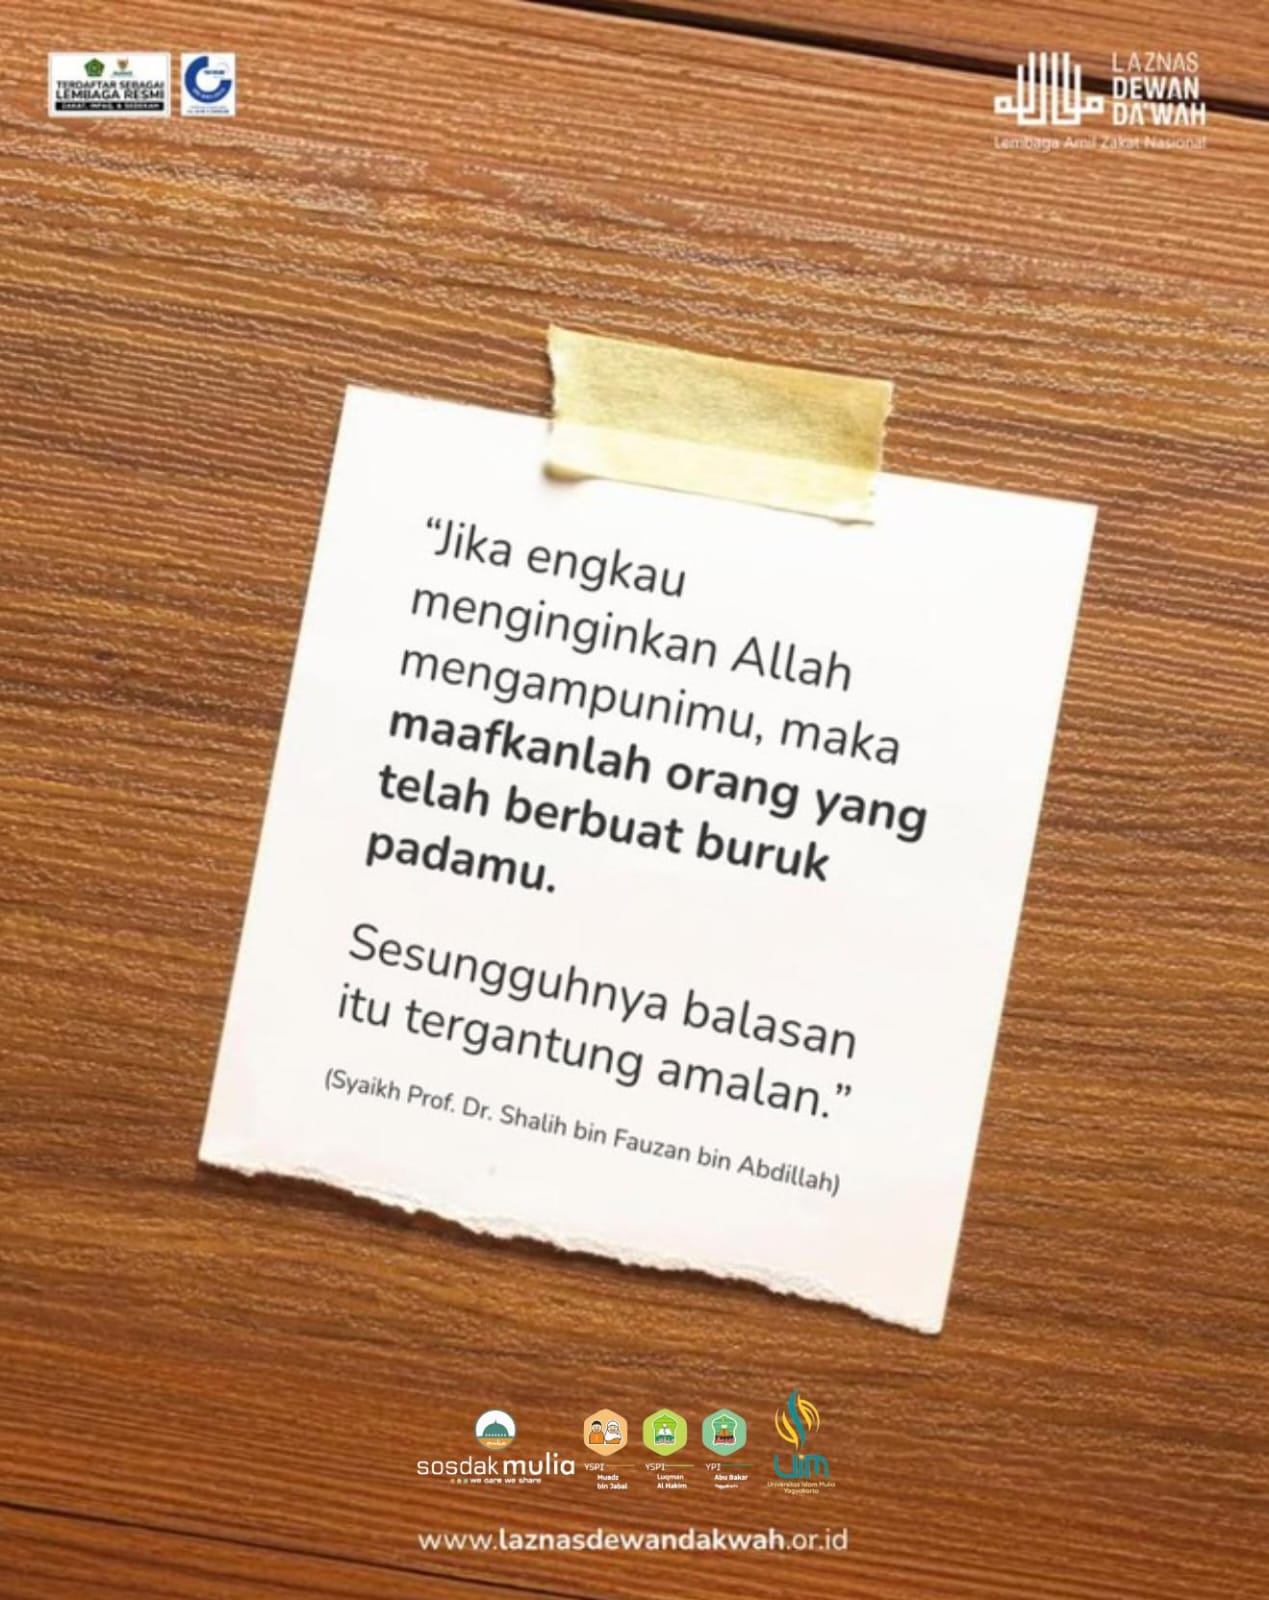 TERDAFTAR SEBAGAI
LEMBAGA RESMI
ZAKAT, INFAQ, & SEDEKAH
LAZNAS
DEWAN
DA'WAH
Lembaga Amil Zakat Nasional
“Jika engkau
menginginkan Allah
mengampunimu, maka
maafkanlah orang yang
telah berbuat buruk
padamu.
Sesungguhnya balasan
itu tergantung amalan.”
(Syaikh Prof. Dr. Shalih bin Fauzan bin Abdillah)
sosdakmulia
we care we share
YSPI
Muadz
bin Jabal
YSPI
Luqman
Al Hakim
YPI
Abu Bakar
Yogyakarta
UIM
Universitas Islam Mulia
Yogyakarta
www.laznasdewandakwah.or.id